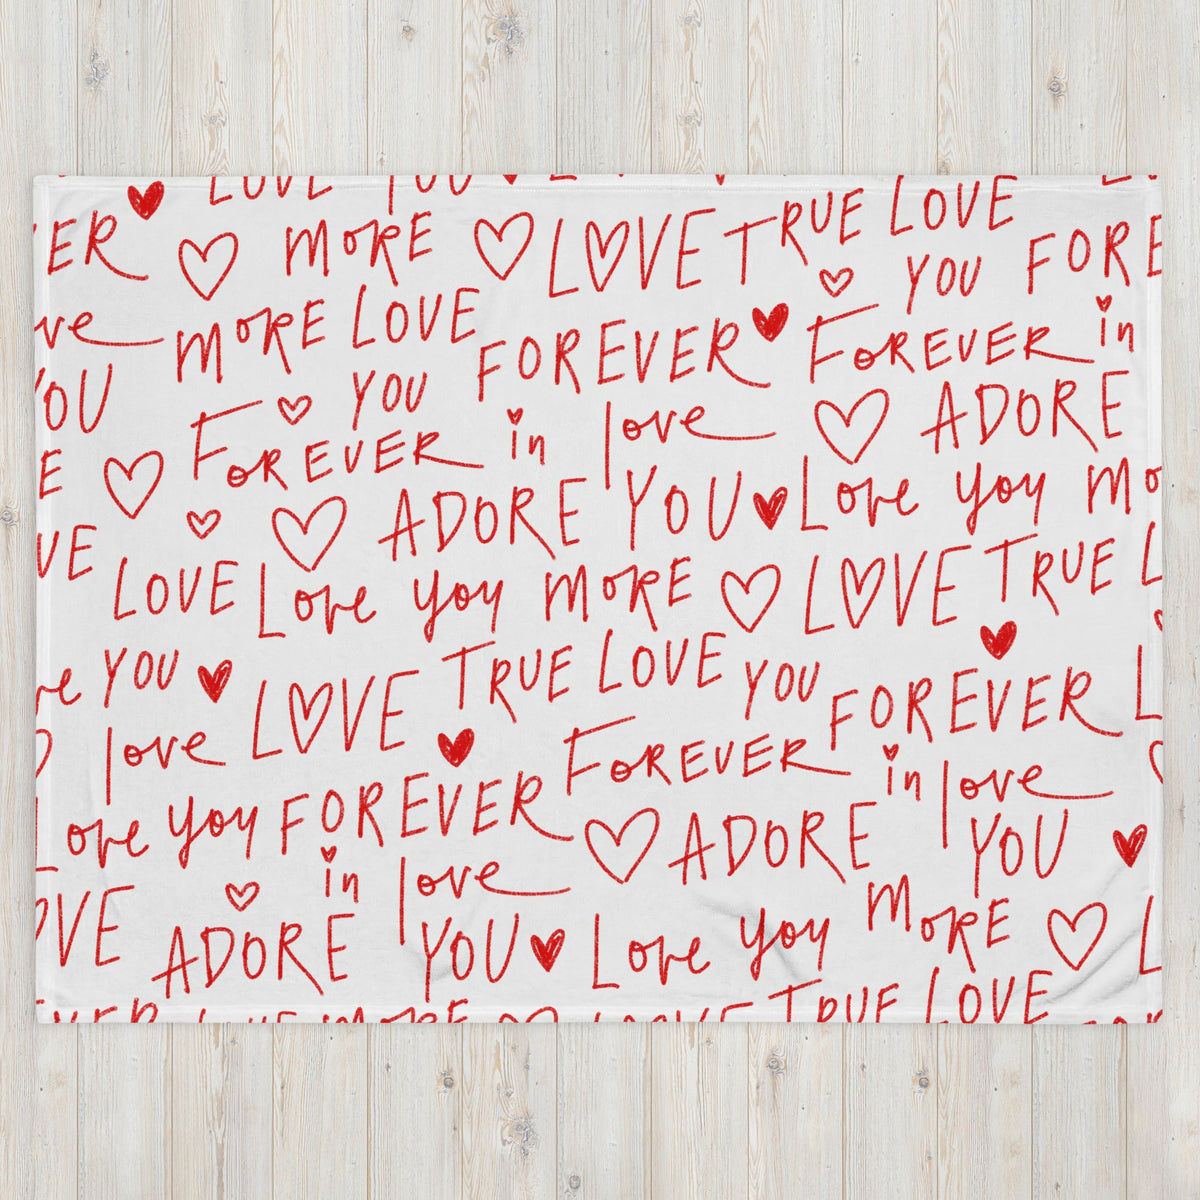 LOVE YOU
ER MORE LOVE TRUE LOVE
YOU FORE
ve MORE LOVE FOREVER FOREVER in
YOU YOU
FOREVER in love ADORE
E ADORE YOU Love you Mo
VE LOVE Love you MORE LOVE TRUE L
ve YOU LOVE TRUE LOVE YOU FOREVER L
love FOREVER in love
Love you FOREVER ADORE YOU
OVE in love MORE
ADORE YOU Love you L
EVER LOVE MORE LOVE TRUE LOVE